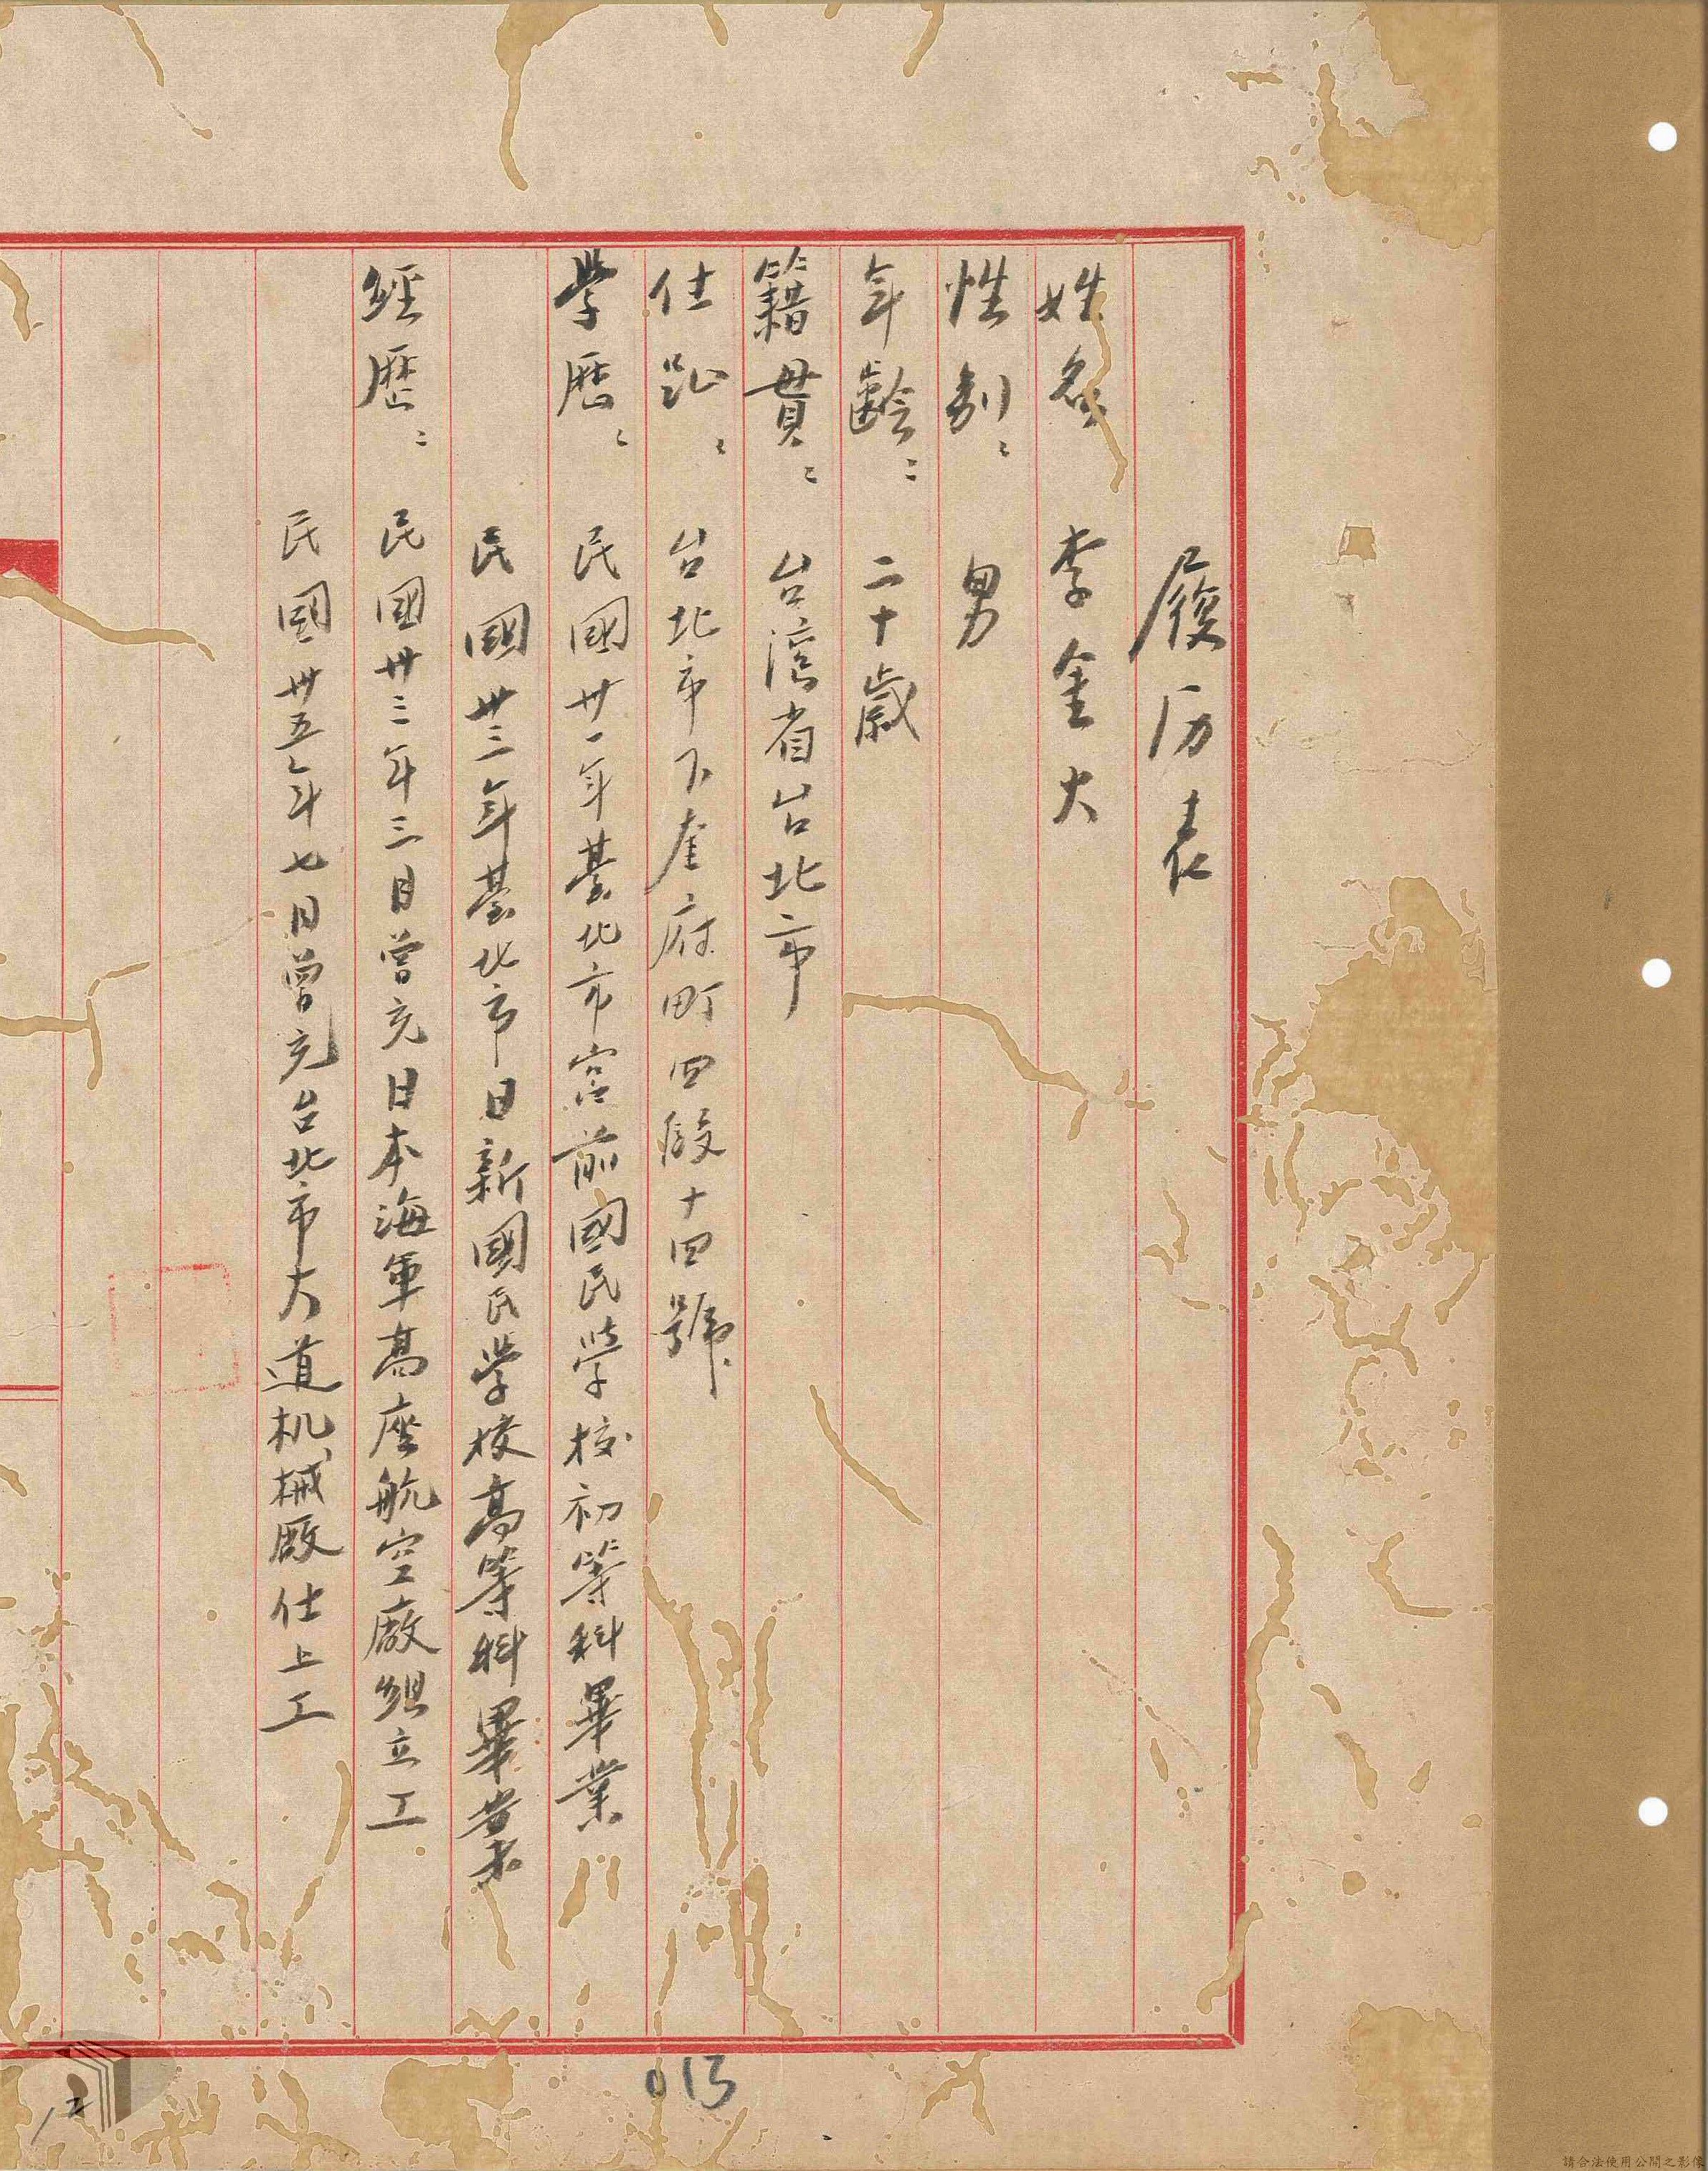 履历表
姓名 李金火
性别： 男
年齡： 二十歲
籍貫： 台湾省台北市
住趾： 台北市下奎府町四段十四號
學歷： 民國卅一年臺北市宮前國民學校初等科畢業
民國卅三年臺北市日新國民學校高等科畢業
經歷： 民國卅三年三月曾充日本海軍高座航空廠組立工
民國卅五年七月曾充台北市大道机械厰仕上工
013
12
請合法使用公開之影像